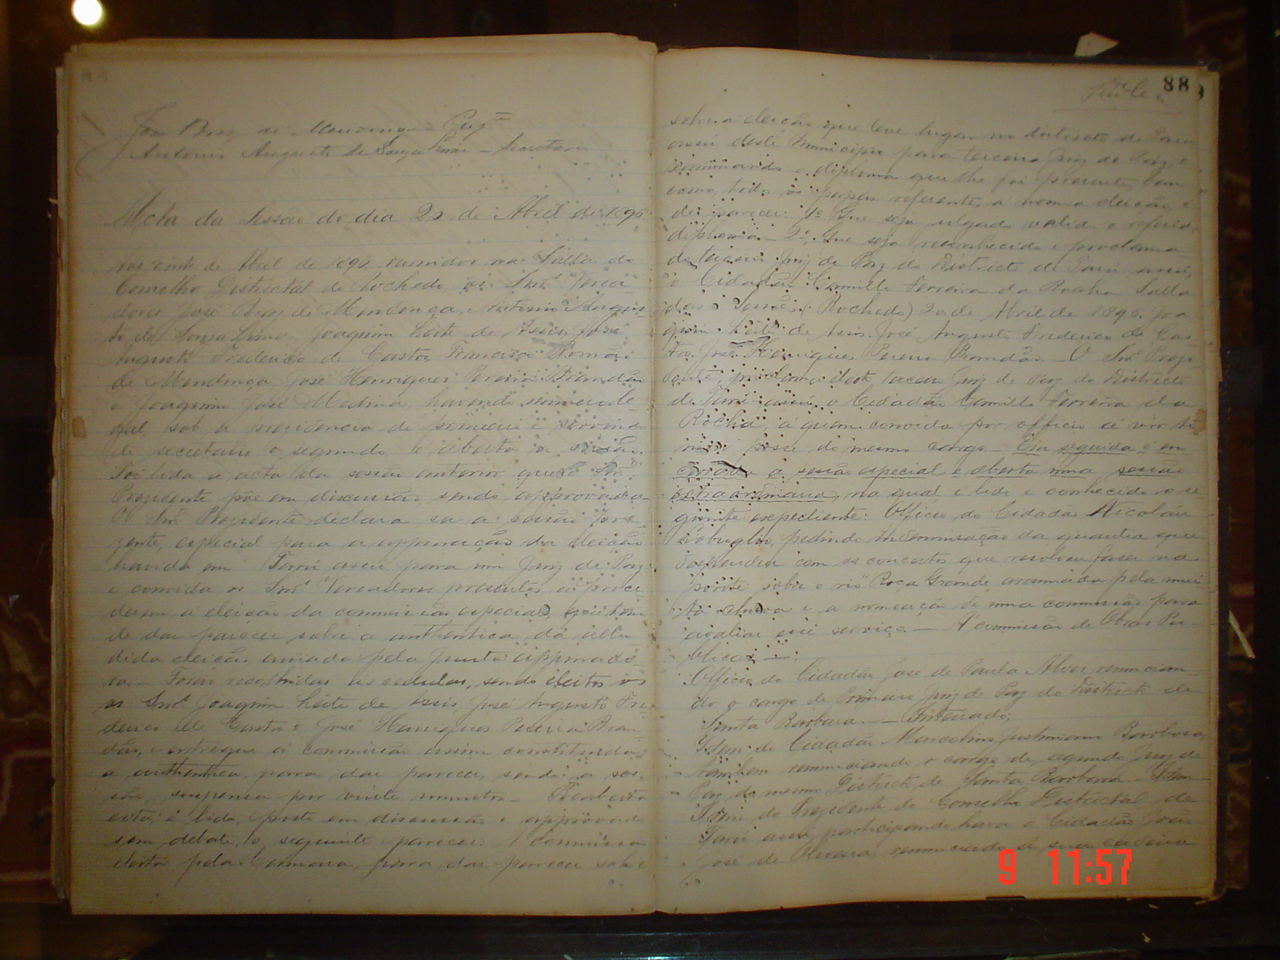 José Braz de Mendonça
Antonio Augusto de Souza Lima - Secretario
Acta da Sessão do dia 20 de Abril de 1896
vinte de Abril de 1896, reunidos na Salla do
Conselho Districtal de Rochedo, os Snrs. Verea
dores José Braz de Mendonça, Antonio Augus
to de Souza Lima, Joaquim Leite de Assis, José
Augusto Frederico de Castro, Francisco Romão
de Mendonça, José Henriques Pereira Brandão
e Joaquim José Medina, havendo numero le
gal, sob a presidencia do primeiro e servindo
de secretario o segundo, é aberta a sessão.
Foi lida a acta da sessão anterior que o Snr.
Presidente põe em discussão sendo approvada
O Snr. Presidente declara ser a sessão pre
zente, especial para a apuração da eleição
havida em para um Juiz de Paz
e convida os Snrs. Vereadores presentes, a proce
derem a eleição da commissão especial, que tem
de dar parecer sobre a authentica da allu
dida eleição enviada pela Junta apurado
ra. - Foram recolhidas as cedulas, sendo eleitos
os Snrs. Joaquim Leite de Assis, José Augusto Fre
derico de Castro e José Henriques Pereira Bran
dão, e entregue á commissão assim constituida
a authentica, para dar parecer, sendo a ses
são, suspensa por vinte minutos - Reaberta
esta, é lido, posto em discussão e approvado
sem debate, o seguinte parecer: A commissão
eleita pela Camara, para dar parecer sobre
88
sobre a eleição que teve lugar no districto de
deste Municipio para terceiro Juiz de Paz,
examinando o diploma que lhe foi presente, bem
como todos os papeis referentes, á mesma eleição, é
de parecer: 1º Que seja julgado valido o referido
diploma - 2º Que seja reconhecido e proclama
do terceiro Juiz de Paz do Districto de
o Cidadão Camillo Ferreira da Rocha Salla
das Sessões (Rochedo) 20 de Abril de 1896. Joa
quim Leite de Assis, José Augusto Frederico de Cas
tro, José Henriques Pereira Brandão - O Snr. Presi
dente, proclama deste terceiro Juiz de Paz do Districto
de o Cidadão Camillo Ferreira da
Rocha, a quem convida por officio a vir to
mar posse do mesmo cargo. Em seguida é en
cerrada a sessão especial e aberta uma sessão
extraordinaria, na qual é lido e conhecido o se
guinte expediente: Officio do Cidadão Nicoláu
pedindo indemnisação da quantia que
despendeu com os concertos que resolveu fazer na
ponte sobre o rio Roça Grande arruinada pela mui
ta chuva e a nomeação de uma commissão para
avaliar esse serviço - A commissão de Obras Pu
blicas -
Officio do Cidadão José de Paula Alves, renuncian
do o cargo de Primeiro Juiz de Paz do Districto de
Santa Barbara - Inteirado,
Idem do Cidadão Marcolino Justiniano Barbosa,
tambem renunciando o cargo de segundo Juiz de
Paz do mesmo Districto de Santa Barbara - Idem
Idem do Presidente do Conselho Districtal de
participando haver o Cidadão João
José de Oliveira, renunciado á sua cadeira
9 11:57